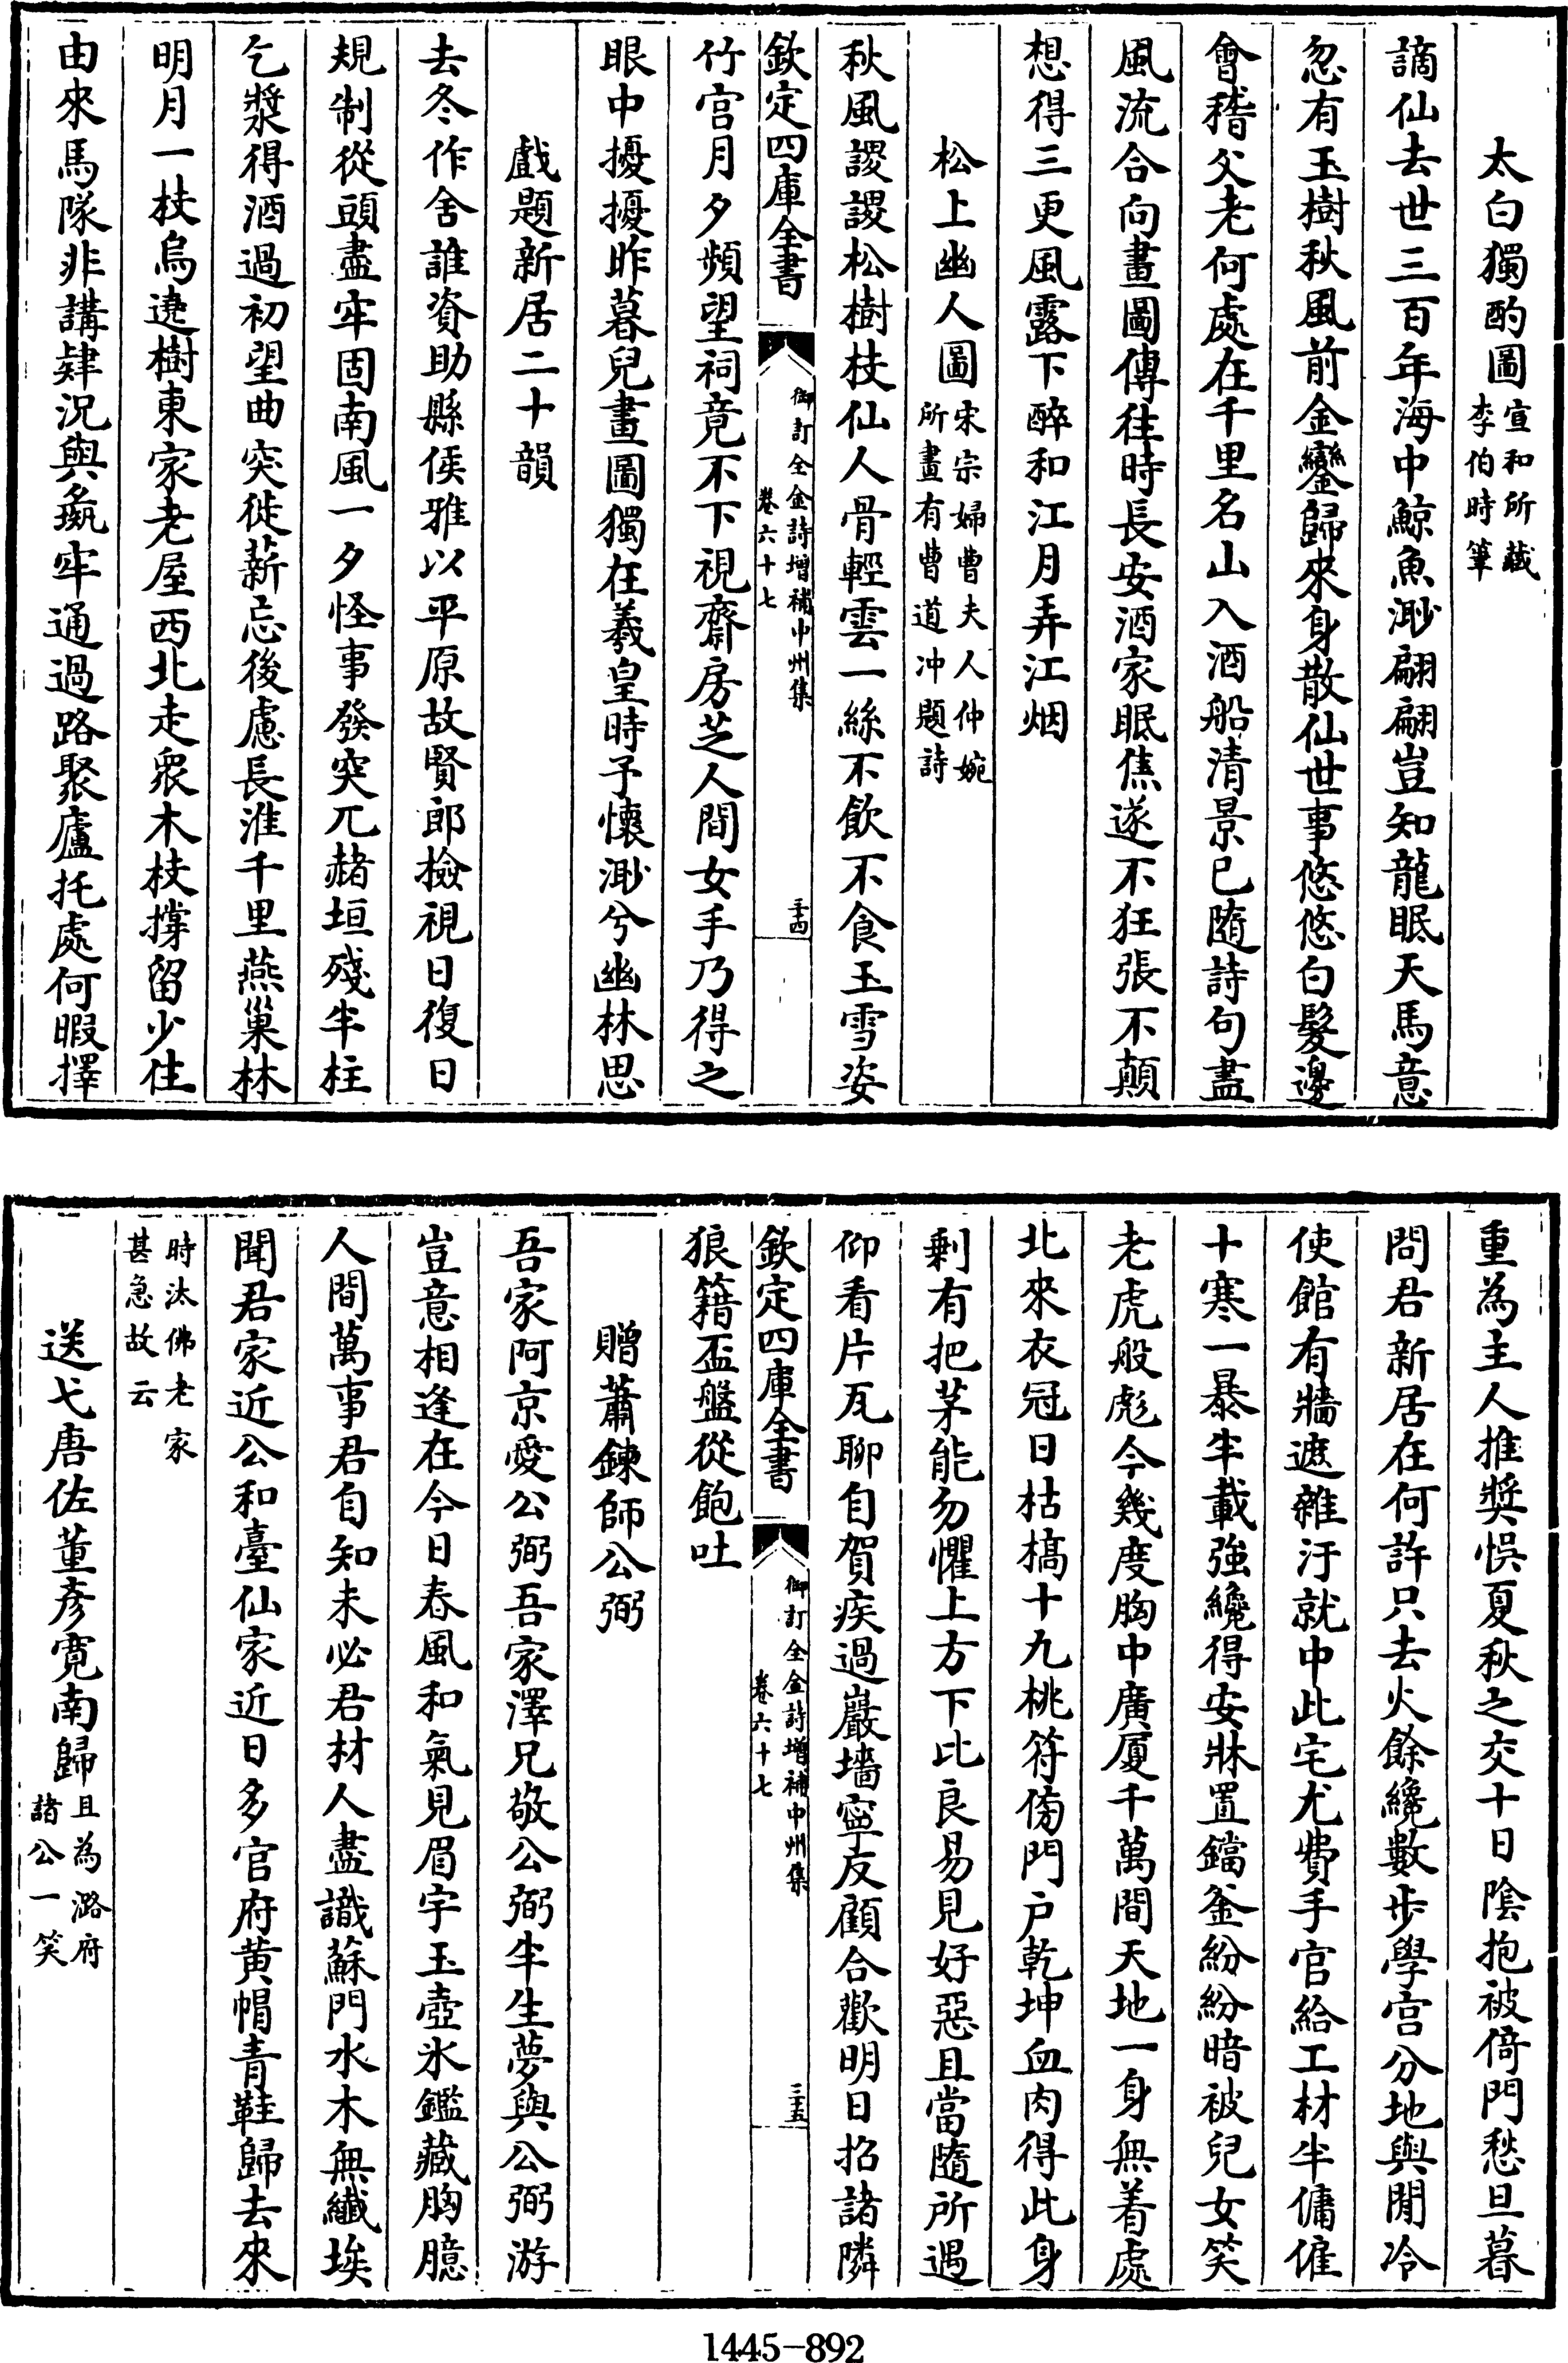 太白獨酌圖宣和所藏李伯時筆
謫仙去世三百年海中鯨魚渺翩翩豈知龍眠天馬意
忽有玉樹秋風前金鑾歸來身散仙世事悠悠白髮邊
會稽父老何處在千里名山入酒船清景已隨詩句盡
風流合向畫圖傳往時長安酒家眠焦遂不狂張不顛
想得三更風露下醉和江月弄江烟
松上幽人圖宋宗婦曹夫人仲婉所畫有曹道冲題詩
秋風謖謖松樹枝仙人骨輕雲一絲不飲不食玉雪姿
欽定四庫全書
御訂全金詩增補中州集
卷六十七
三十四
竹宮月夕頻望祠竟不下視齋房芝人間女手乃得之
眼中擾擾昨暮兒畫圖獨在羲皇時予懷渺兮幽林思
戲題新居二十韻
去冬作舍誰資助縣侯雅以平原故賢郎檢視日復日
規制從頭盡牢固南風一夕怪事發突兀赭垣殘半柱
乞漿得酒過初望曲突徙薪忘後慮長淮千里燕巢林
明月一枝烏遶樹東家老屋西北走衆木杖撐留少住
由來馬隊非講肄況與彘牢通過路聚廬托處何暇擇
重為主人推獎悞夏秋之交十日陰抱被倚門愁旦暮
問君新居在何許只去火餘纔數步學宮分地與閒冷
使館有牆遮雜汙就中此宅尤費手官給工材半傭僱
十寒一暴半載強纔得安牀置鐺釜紛紛暗被兒女笑
老虎般彪今幾度胸中廣廈千萬間天地一身無着處
北來衣冠日枯槁十九桃符傍門户乾坤血肉得此身
剩有把茅能勿懼上方下比良易見好惡且當隨所遇
仰看片瓦聊自賀疾過巖墻寧反顧合歡明日招諸隣
欽定四庫全書
御訂全金詩增補中州集
卷六十七
三十五
狼籍盃盤從飽吐
贈蕭鍊師公弼
吾家阿京愛公弼吾家澤兄敬公弼半生夢與公弼游
豈意相逢在今日春風和氣見眉宇玉壺氷鑑藏胸臆
人間萬事君自知未必君材人盡識蘇門水木無纖埃
聞君家近公和臺仙家近日多官府黄帽青鞋歸去來
時汰佛老家甚急故云
送弋唐佐董彥寛南歸且為潞府諸公一笑
1445-892